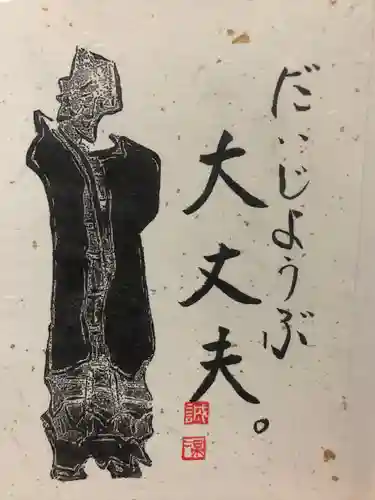 だいじようぶ
大丈夫。
誠